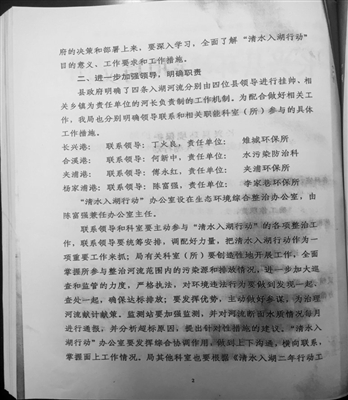 府的决策和部署上来，要深入学习，全面了解“清水入湖行动”
目的意义、工作要求和工作措施。
二、进一步加强领导，明确职责
县政府明确了四条入湖河流分别由四位县领导进行挂帅，相
关乡镇为责任单位的河长负责制的工作机制，为配合做好相关工
作，我局也分别明确领导联系和相关职能科室（所）参与的具体
工作措施。
长兴港： 联系领导：丁火良，责任单位： 雉城环保所
合溪港： 联系领导：何新中，责任单位： 水污染防治科
夹浦港： 联系领导：傅永红，责任单位： 夹浦环保所
杨家浦港： 联系领导：陈富强，责任单位： 李家巷环保所
“清水入湖行动”办公室设在生态环境综合整治办公室，由
陈富强兼任办公室主任。
联系领导和科室要主动参与“清水入湖行动”的各项整治工
作，联系领导要统筹安排，调配好力量，把清水入湖行动作为一
项重要工作来抓；局有关科室（所）要创造性地开展工作，全面
掌握所参与整治河流范围内的污染源和排放情况，进一步加大巡
查和监管的力度，严格执法，对环境违法行为要做到发现一起、
查处一起，确保达标排放；要发挥优势，主动做好参谋，为治理
河流献计献策。监测站要加强监测，并对河流断面水质情况每月
进行通报，并分析超标原因，提出针对性措施的建议。“清水入
湖行动”办公室要发挥综合协调作用，做到上下沟通，横向联系，
掌握面上工作情况。局其他科室也要根据《清水入湖二年行动工
2